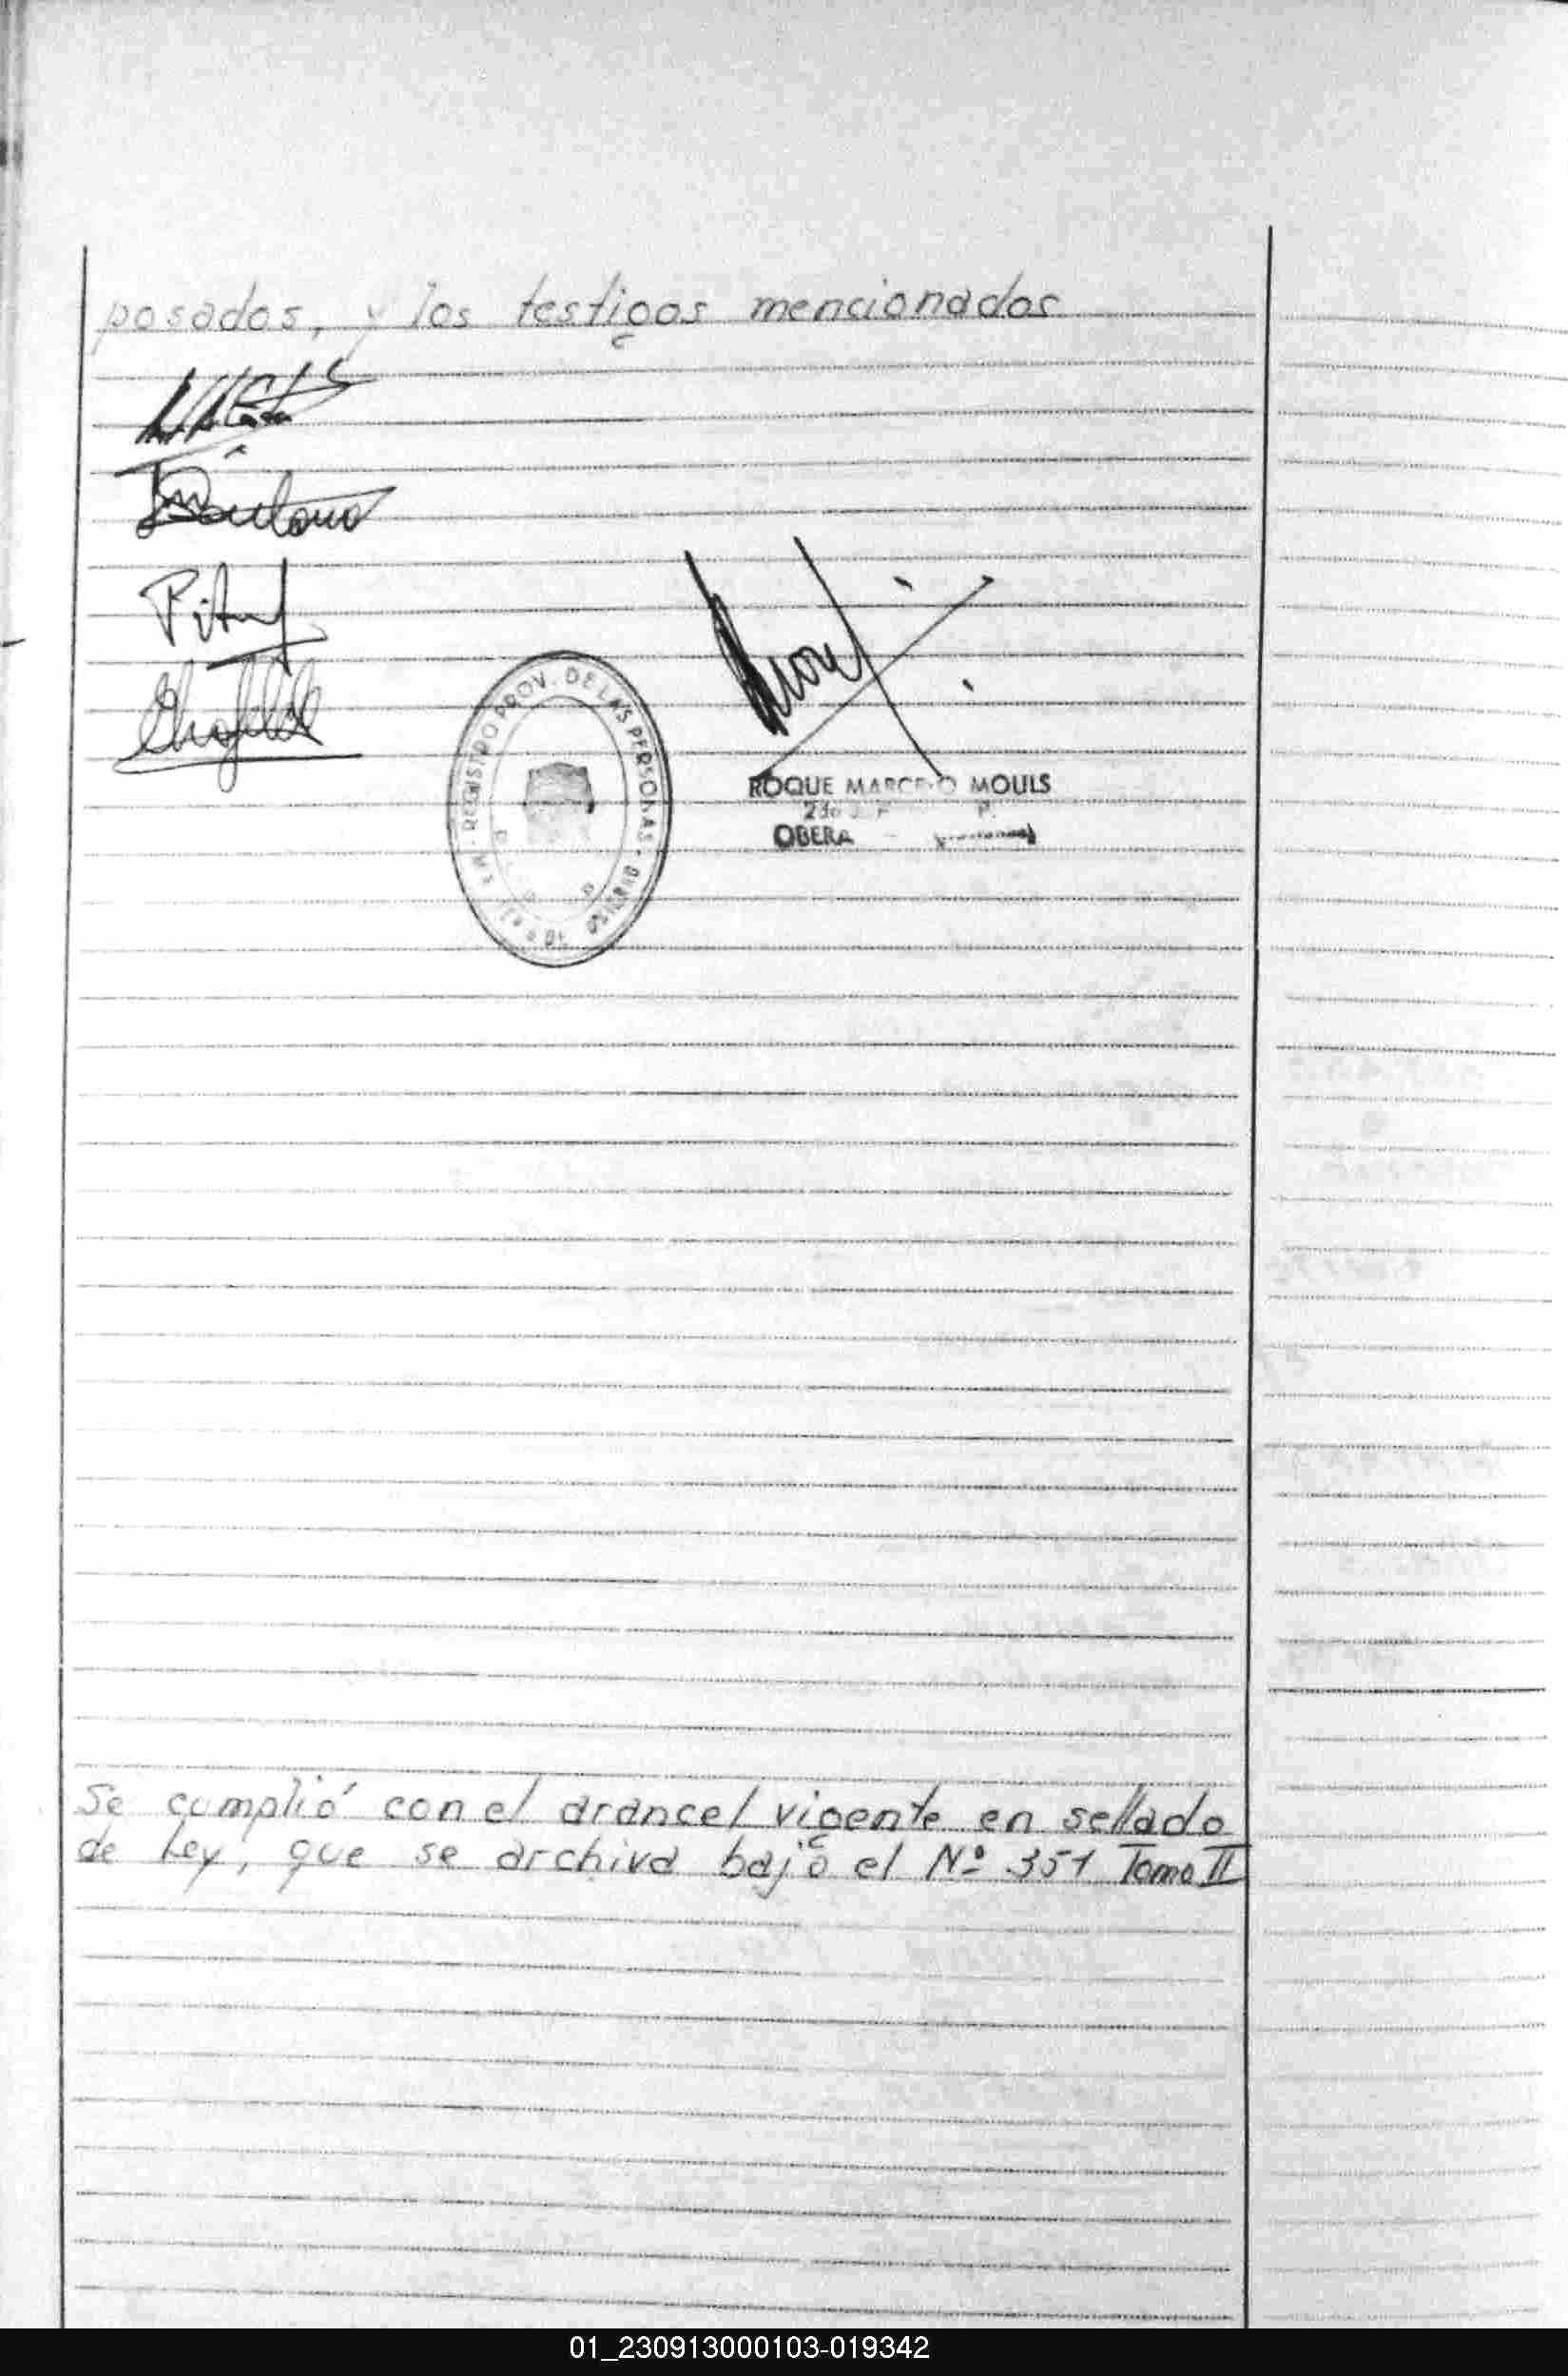 posados, y los testigos mencionados.
REGISTRO PROV. DE LAS PERSONAS
ROQUE MOULS
OBERA
Se cumplió con el arancel vigente en sellado
de Ley, que se archiva bajo el Nº 351 Tomo II
01_230913000103-019342